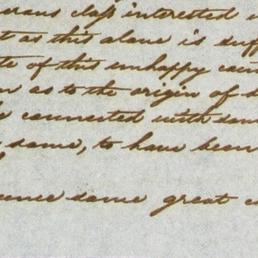 class interested
t as this alone is
te of this unhappy
n as to the origin of
connected with some
some, to have been
some great